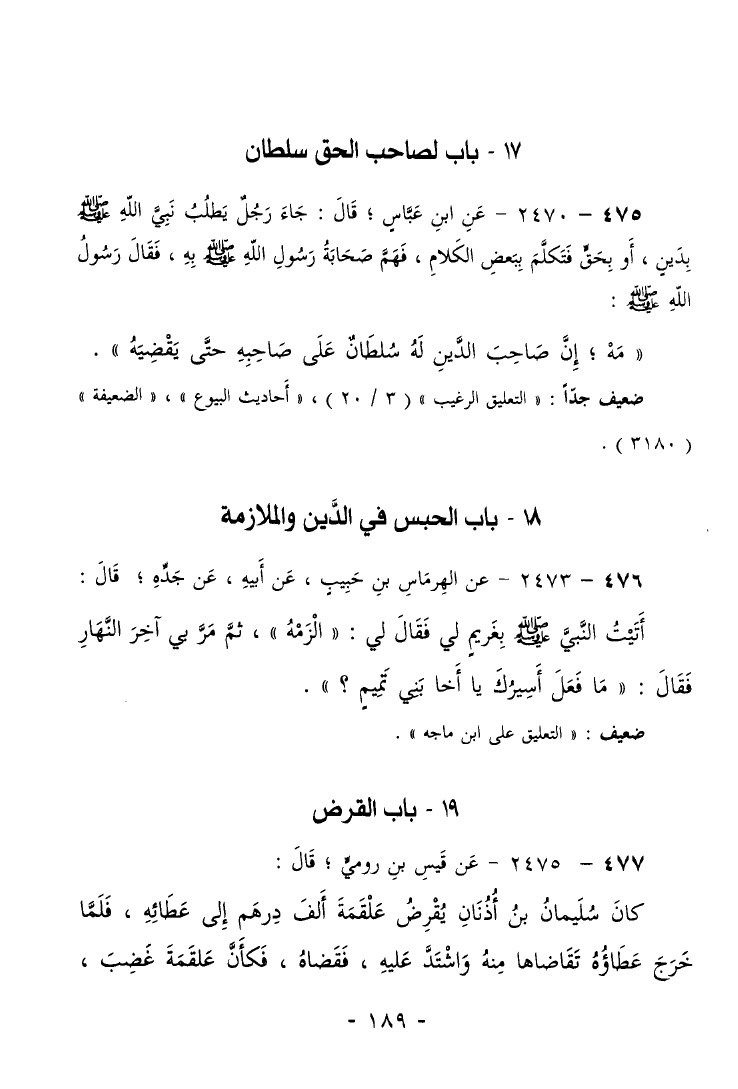 ١٧ - باب لصاحب الحق سلطان
٤٧٥ – ٢٤٧٠ – عَنِ ابنِ عَبَّاسٍ ؛ قَالَ : جَاءَ رَجُلٌ يَطلُبُ نَبِيَّ اللّهِ ﷺ
بِدَينٍ ، أَو بِحَقٍّ فَتَكلَّمَ بِبَعضِ الكَلامِ ، فَهَمَّ صَحَابَةُ رَسُولِ اللّهِ ﷺ بِهِ ، فَقَالَ رَسُولُ
اللّهِ ﷺ :
« مَهْ ؛ إِنَّ صَاحِبَ الدَّينِ لَهُ سُلطَانٌ عَلَى صَاحِبِهِ حتَّى يَقْضِيَهُ » .
ضعيف جدّاً : « التعليق الرغيب » ( ٣ / ٢٠ ) ، « أحاديث البيوع » ، « الضعيفة »
( ٣١٨٠ ) .
١٨ - باب الحبس في الدَّين والملازمة
٤٧٦ – ٢٤٧٣ – عن الهِرمَاسِ بنِ حَبِيبٍ ، عَن أَبيهِ ، عَن جَدِّهِ ؛ قَالَ :
أَتَيْتُ النَّبيَّ ﷺ بِغَريمٍ لي فَقَالَ لي : « الْزَمْهُ » ، ثمَّ مَرَّ بي آخِرَ النَّهَارِ
فَقَالَ : « مَا فَعَلَ أَسِيرُكَ يا أَخا بَنِي تَمِيمٍ ؟ » .
ضعيف : « التعليق على ابن ماجه » .
١٩ - باب القرض
٤٧٧ – ٢٤٧٥ – عَن قَيسِ بنِ روميٍّ ؛ قَالَ :
كانَ سُلَيمانُ بنُ أُذُنَانِ يُقْرِضُ عَلْقَمَةَ أَلفَ دِرهَم إِلى عَطَائِهِ ، فَلَمَّا
خَرَجَ عَطَاؤُهُ تَقَاضاها مِنهُ وَاشْتَدَّ عَليهِ ، فَقَضاهُ ، فَكأَنَّ عَلقَمَةَ غَضِبَ ،
- ١٨٩ -